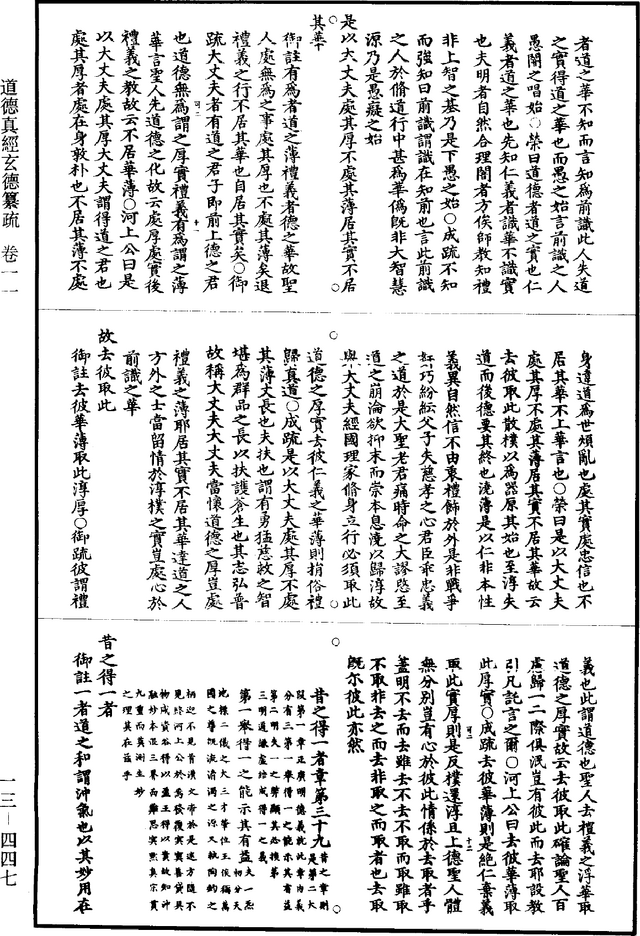 道德真經玄德纂疏 卷一一
一三—四四七
者道之華不知而言知為前識此人失道
之實得道之華也而愚之始言前識之人
愚闇之唱始○榮曰道德者道之實也仁
義者道之華也先知仁義者識華不識實
也夫明者自然合理闇者方俟師教知禮
非上智之基乃是下愚之始○成疏不知
而強知曰前識謂識在知前也言此前識
之人於脩道行中甚為華偽既非大智慧
源乃是愚癡之始
是以大丈夫處其厚不處其薄居其實不居
其華
御註有為者道之薄禮義者德之華故聖
人處無為之事處其厚也不處其薄矣退
禮義之行不居其華也自居其實矣○御
疏大丈夫者有道之君子即前上德之君
也道德無為謂之厚實禮義有為謂之薄
華言聖人先道德之化故云處厚處實後
禮義之教故云不居華薄○河上公曰是
以大丈夫處其厚大丈夫謂得道之君也
處其厚者處在身敦朴也不居其薄不處
身違道為世煩亂也處其實處忠信也不
居其華不上華言也○榮曰是以大丈夫
處其厚不處其薄居其實不居其華故云
去彼取此散樸以為器原其始也至淳失
道而後德要其終也澆薄是以仁非本性
義異自然信不由衷禮飾於外是非戰爭
姧巧紛紜父子失慈孝之心君臣乖忠義
之道於是大聖老君痛時命之大謬愍至
道之崩淪欲抑末而崇本息澆以歸淳故
與大丈夫經國理家脩身立行必須取此
道德之厚實去彼仁義之華薄則捐俗禮
歸真道○成疏是以大丈夫處其厚不處
其薄丈長也夫扶也謂有勇猛慈救之智
堪為群品之長以扶護蒼生也其志弘普
故稱大丈夫大丈夫當懷道德之厚豈處
禮義之薄耶居其實不居其華達道之人
方外之士當留情於淳樸之實豈處心於
前識之華
故去彼取此
御註去彼華薄取此淳厚○御疏彼謂禮
義也此謂道德也聖人去禮義之浮華取
道德之厚實故云去彼取此確論聖人百
慮歸一二際俱泯豈有彼此而去耶設教
引凡託言之爾○河上公曰去彼華薄取
此厚實○成疏去彼華薄則是絕仁棄義
取此實厚則是反樸還淳且上德聖人體
無分別豈有心於彼此情係於去取者乎
蓋明不去而去雖去不去不取而取雖取
不取非去之而去非取之而取者也去取
既尒彼此亦然
昔之得一者章第三十九
昔之得一者
御註一者道之和謂沖氣也以其妙用在